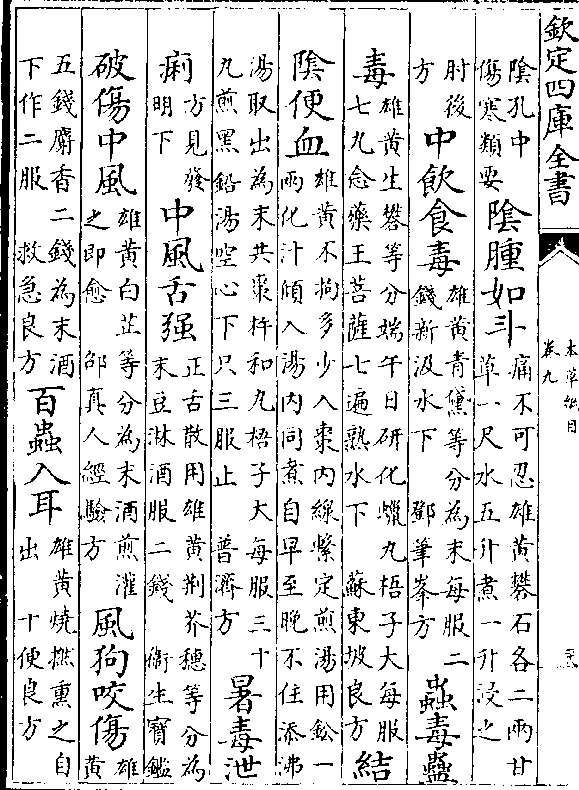 欽定四庫全書
本草綱目
卷九
陰孔中傷寒類要 陰腫如斗 痛不可忍雄黄礬石各二兩甘草一尺水五升煮一升浸之
肘後方 中飲食毒 雄黄青黛等分為末每服二錢新汲水下 鄧筆峯方 蟲毒蠱
毒 雄黄生礬等分端午日研化蠟丸梧子大每服七丸念藥王菩薩七遍熟水下 蘇東坡良方 結
陰便血 雄黄不拘多少入棗内線繫定煎湯用鉛一兩化汁傾入湯内同煮自早至晚不住添沸
湯取出為末共棗杵和丸梧子大每服三十丸煎黑鉛湯空心下只三服止 普濟方 暑毒泄
痢 方見發明下 中風舌强 正舌散用雄黄荆芥穗等分為末豆淋酒服二錢 衛生寶鑑
破傷中風 雄黄白芷等分為末酒煎灌之即愈 邵真人經驗方 風狗咬傷 雄黄
五錢麝香二錢為末酒下作二服 救急良方 百蟲入耳 雄黄燒撚熏之自出 十便良方